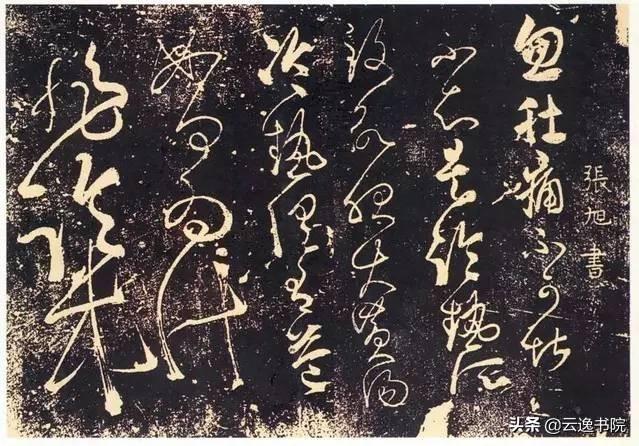 張旭書
忽肚痛不可堪
不知是冷熱所
致欲服大黃湯
冷熱俱有益
如何為計
非臨床
头条 @云逸书院